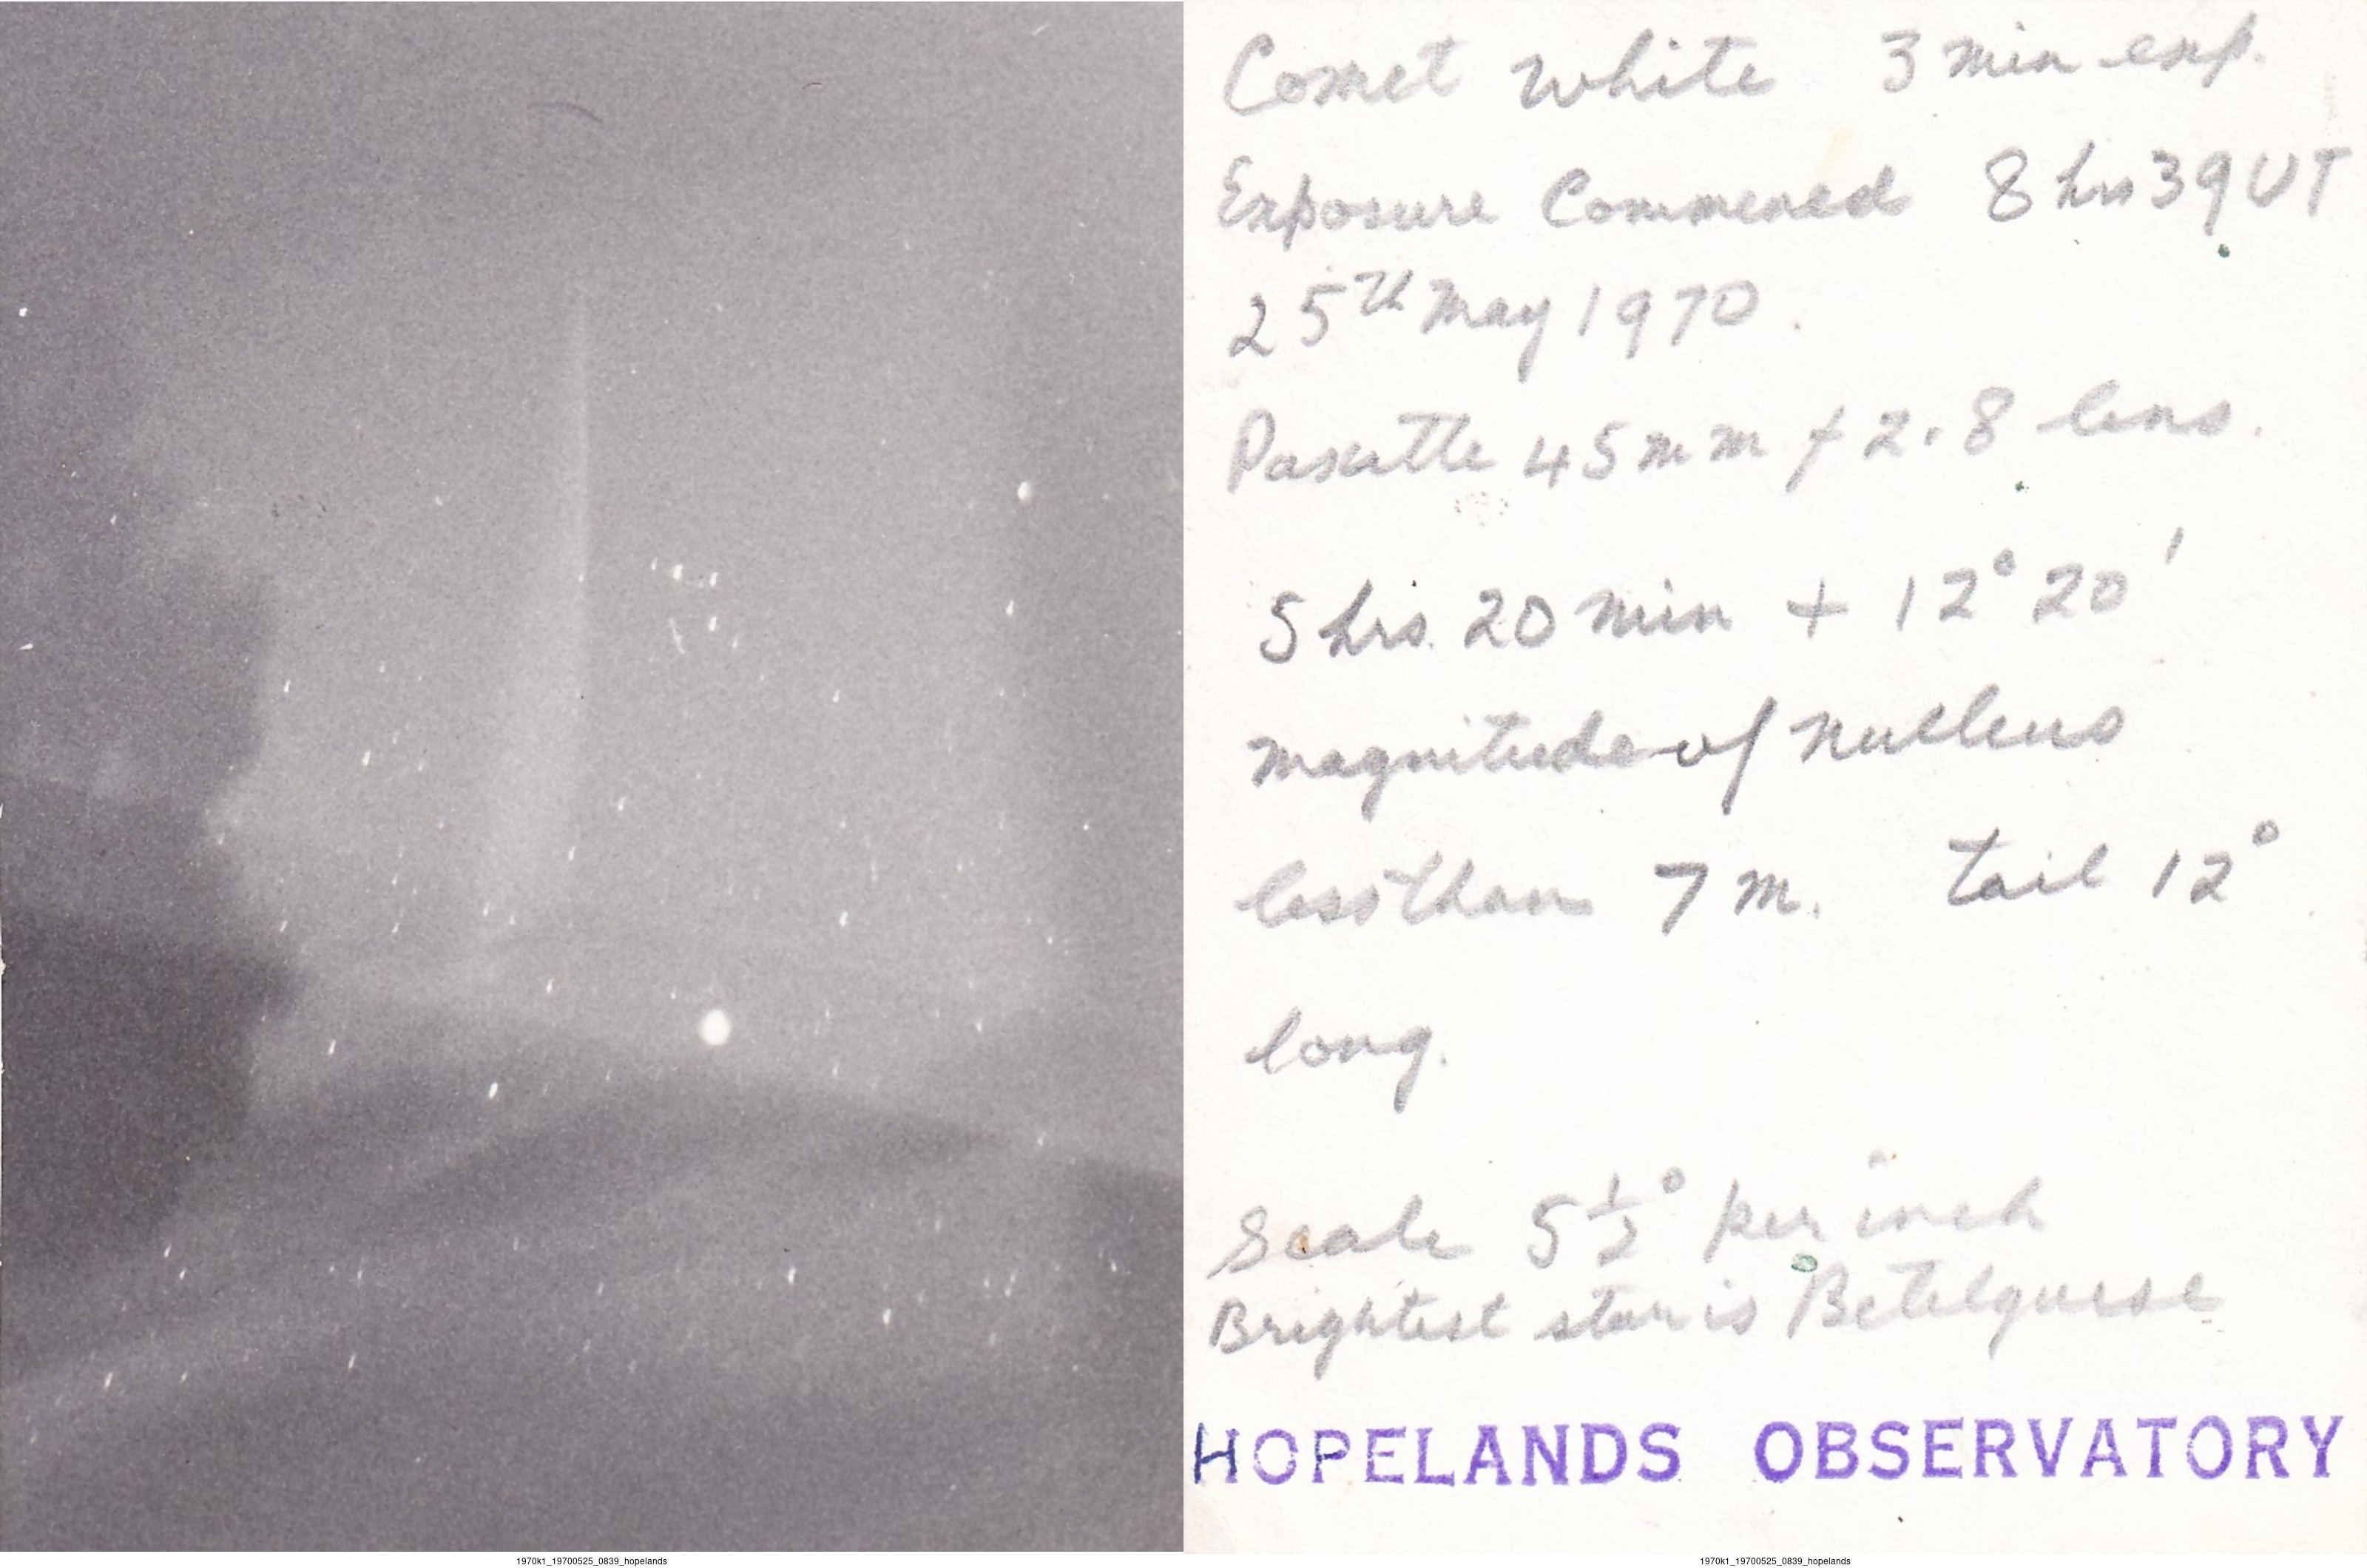 Comet White 3 min exp.
Exposure Commenced 8 hrs 39 UT
25th May 1970.
Paxette 45mm f 2.8 lens.
5 hrs. 20 min + 12° 20'
magnitude of nucleus
less than 7 m. tail 12°
long.
Scale 5 1/2° per inch
Brightest star is Betelguese
HOPELANDS OBSERVATORY
1970k1_19700525_0839_hopelands
1970k1_19700525_0839_hopelands